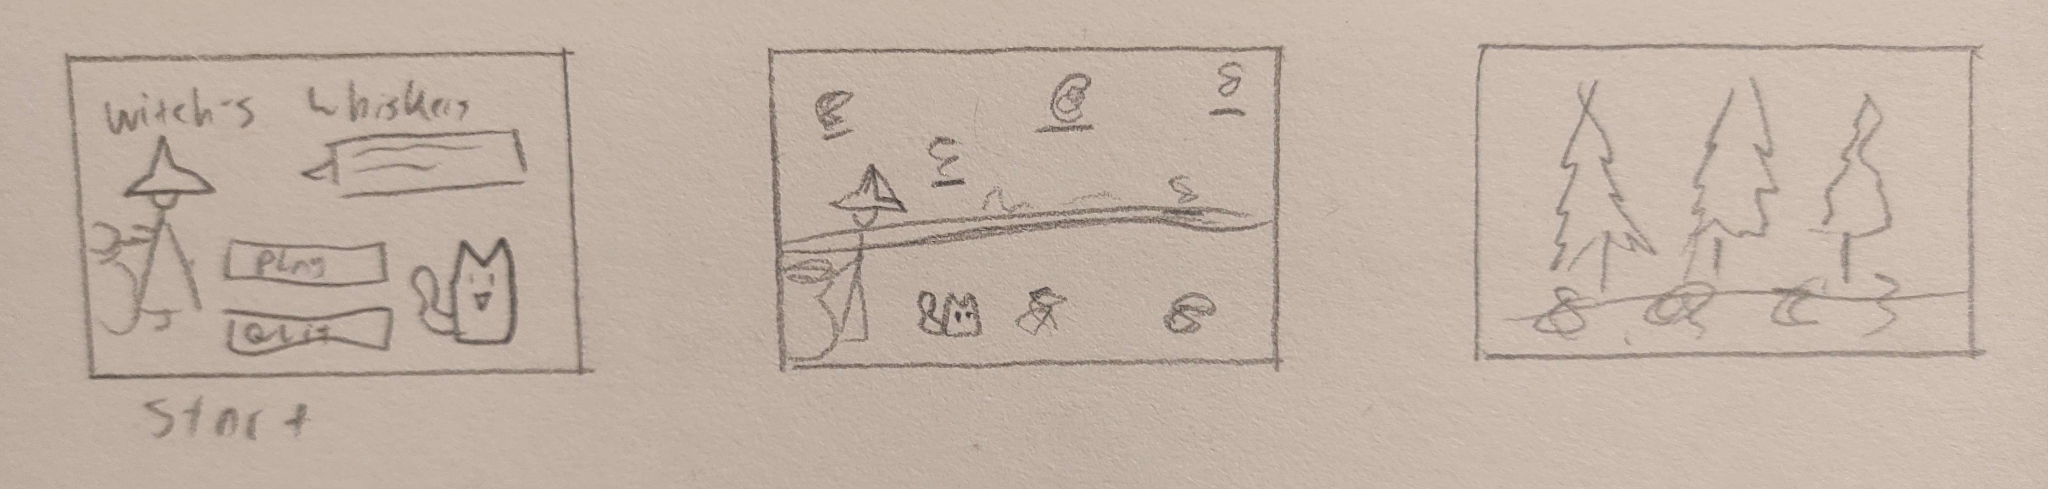 Witch's Whiskers
Play
Quit
Start